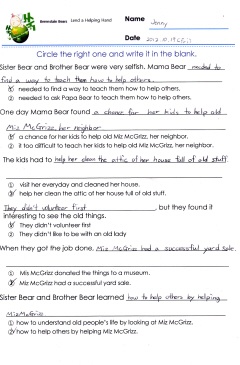 Berenstain Bears Lend a Helping Hand
Name Jenny
Date 2012.10.19
Circle the right one and write it in the blank.
Sister Bear and Brother Bear were very selfish. Mama Bear needed to
find a way to teach them how to help others.
① needed to find a way to teach them how to help others.
② needed to ask Papa Bear to teach them how to help others.
One day Mama Bear found a chance for her kids to help old
Miz McGrizz, her neighbor.
① a chance for her kids to help old Miz McGrizz, her neighbor.
② it too difficult to teach her kids to help old Miz McGrizz, her neighbor.
The kids had to help her clean the attic of her house full of old stuff.
① visit her everyday and cleaned her house.
② help her clean the attic of her house full of old stuff.
They didn't volunteer first, but they found it
interesting to see the old things.
① They didn't volunteer first
② They didn't like to be with an old lady
When they got the job done, Miz McGrizz had a successful yard sale.
① Mis McGrizz donated the things to a museum.
② Miz McGrizz had a successful yard sale.
Sister Bear and Brother Bear learned how to help others by helping
Miz McGrizz
① how to understand old people's life by looking at Miz McGrizz.
② how to help others by helping Miz McGrizz.